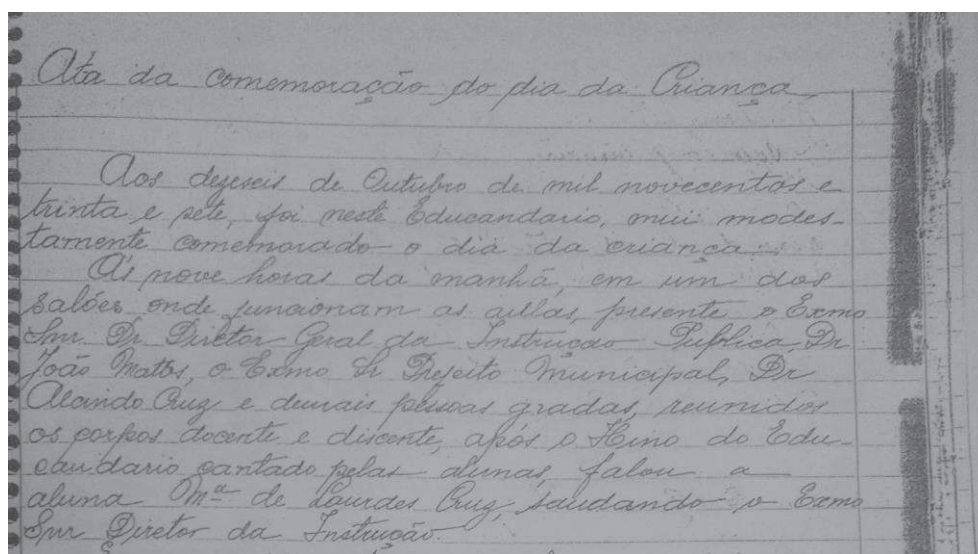 Ata da comemoração do dia da Criança
Aos dezeseis de Outubro de mil novecentos e
trinta e sete, foi neste Educandario, mui modes-
tamente comemorado o dia da criança.
Ás nove horas da manhã, em um dos
salões onde funcionam as aulas, presente o Exmo
Snr. Dr. Diretor Geral da Instrucao Publica, Dr
João Mattos, o Exmo Sr Prefeito Municipal, Dr
Alcindo Cruz e demais pessoas gradas, reunidos
os corpos docente e discente, após o Hino do Edu-
candario cantado pelas alunas, falou a
aluna Mª de Lourdes Cruz, saudando o Exmo
Snr Diretor da Instrução.